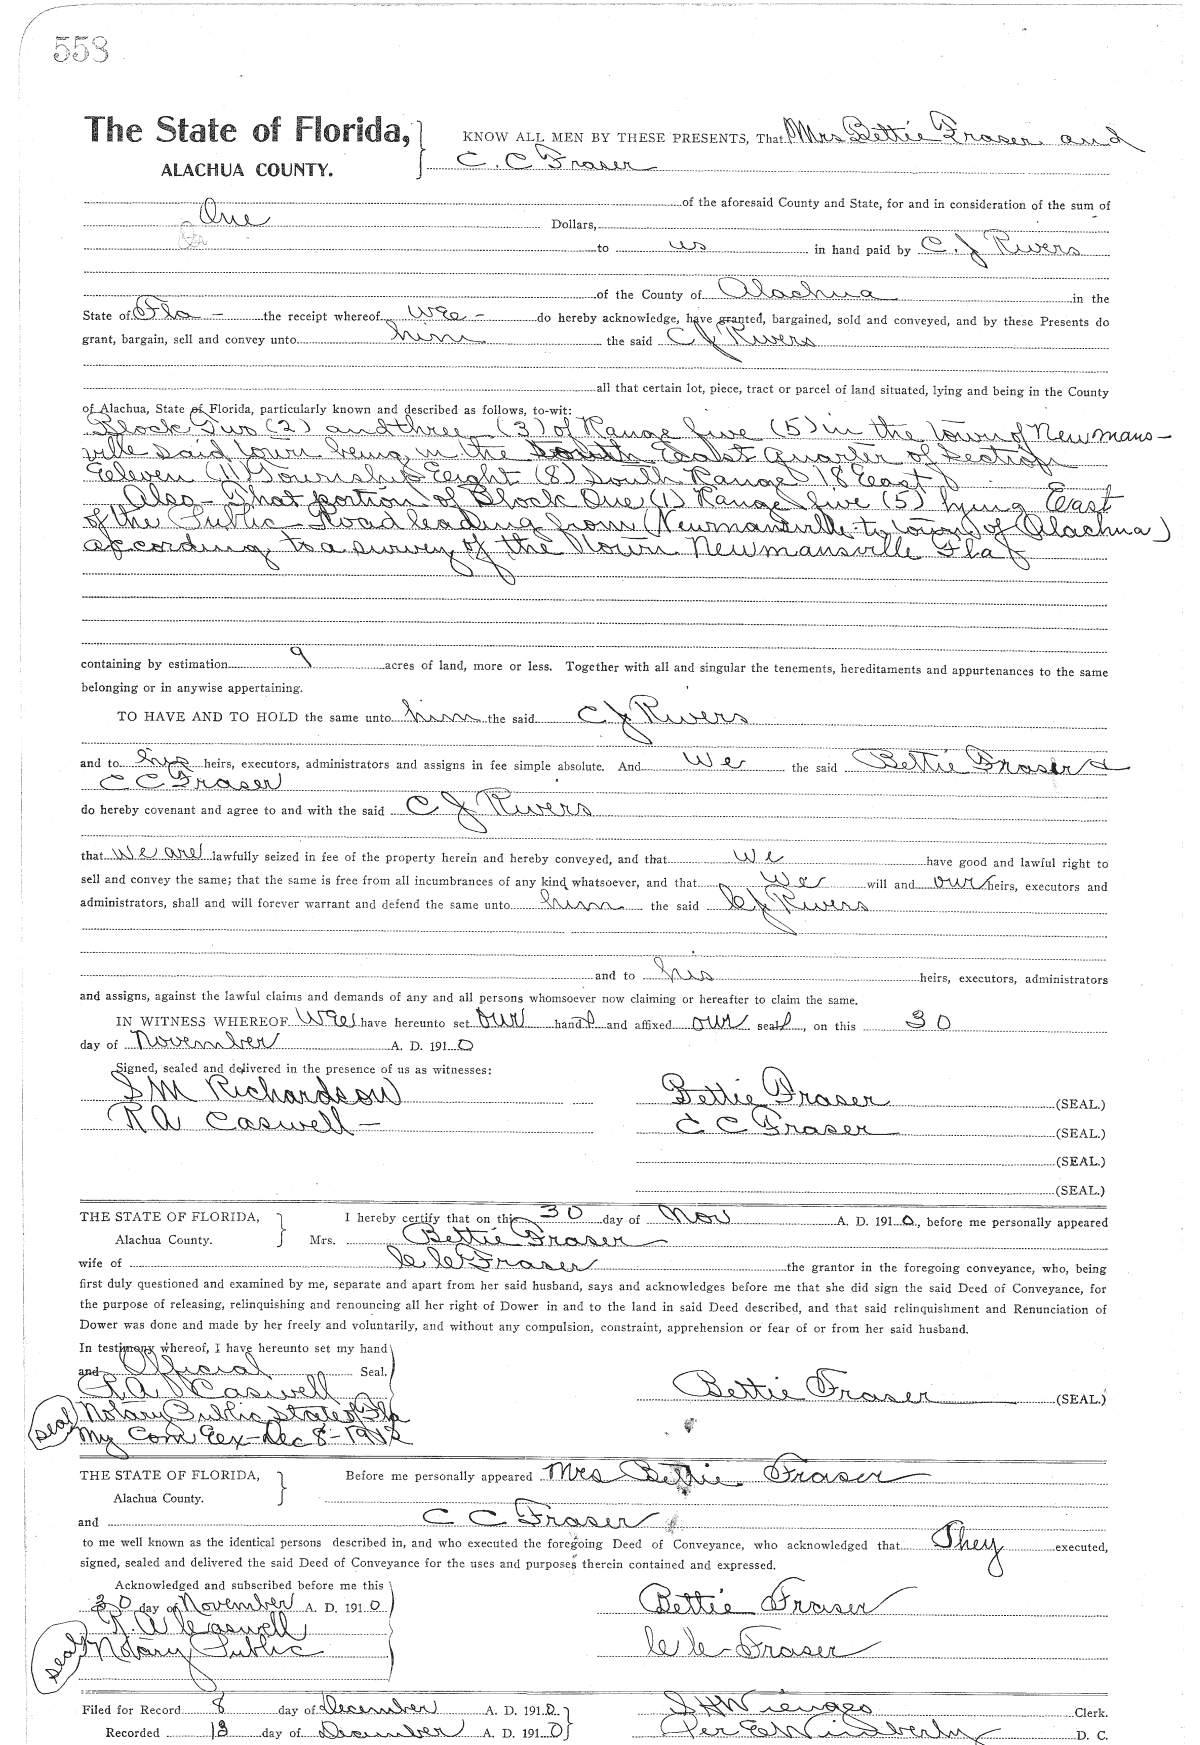 558
The State of Florida,
ALACHUA COUNTY.
KNOW ALL MEN BY THESE PRESENTS, That Mrs Bettie Fraser and
C. C Fraser
of the aforesaid County and State, for and in consideration of the sum of
One Dollars,
to us in hand paid by C. J Rivers
of the County of Alachua in the
State of Fla - the receipt whereof we - do hereby acknowledge, have granted, bargained, sold and conveyed, and by these Presents do
grant, bargain, sell and convey unto him the said C J Rivers
all that certain lot, piece, tract or parcel of land situated, lying and being in the County
of Alachua, State of Florida, particularly known and described as follows, to-wit:
Block Two (2) and three (3) of Range five (5) in the town of Newmans-
ville said town being in the South East Quarter of Section
Eeleven (11) Township Eeight (8) South Range 18 East
Also - That portion of Block One (1) Range five (5) lying East
of the Public Road leading from (Newmansville to town of Alachua)
according to a survey of the Town Newmansville Fla
containing by estimation 9 acres of land, more or less. Together with all and singular the tenements, hereditaments and appurtenances to the same
belonging or in anywise appertaining.
TO HAVE AND TO HOLD the same unto him the said C J Rivers
and to his heirs, executors, administrators and assigns in fee simple absolute. And We the said Bettie Fraser &
C C Fraser
do hereby covenant and agree to and with the said C J Rivers
that we are lawfully seized in fee of the property herein and hereby conveyed, and that we have good and lawful right to
sell and convey the same; that the same is free from all incumbrances of any kind whatsoever, and that We will and our heirs, executors and
administrators, shall and will forever warrant and defend the same unto him the said C J Rivers
and to his heirs, executors, administrators
and assigns, against the lawful claims and demands of any and all persons whomsoever now claiming or hereafter to claim the same.
IN WITNESS WHEREOF We have hereunto set our hand and affixed our seal, on this 30
day of November A. D. 1910
Signed, sealed and delivered in the presence of us as witnesses:
S M Richardson Bettie Fraser (SEAL.)
R A Caswell - C C Fraser (SEAL.)
(SEAL.)
(SEAL.)
THE STATE OF FLORIDA, I hereby certify that on this 30 day of Nov A. D. 1910, before me personally appeared
Alachua County. Mrs. Bettie Fraser
wife of C C Fraser the grantor in the foregoing conveyance, who, being
first duly questioned and examined by me, separate and apart from her said husband, says and acknowledges before me that she did sign the said Deed of Conveyance, for
the purpose of releasing, relinquishing and renouncing all her right of Dower in and to the land in said Deed described, and that said relinquishment and Renunciation of
Dower was done and made by her freely and voluntarily, and without any compulsion, constraint, apprehension or fear of or from her said husband.
In testimony whereof, I have hereunto set my hand
and Official Seal.
R. A. Caswell Bettie Fraser (SEAL)
seal Notary Public State of Fla
My Com Eex - Dec 8 - 1912
THE STATE OF FLORIDA, Before me personally appeared Mrs Bettie Fraser
Alachua County.
and C C Fraser
to me well known as the identical persons described in, and who executed the foregoing Deed of Conveyance, who acknowledged that They executed,
signed, sealed and delivered the said Deed of Conveyance for the uses and purposes therein contained and expressed.
Acknowledged and subscribed before me this
30 day of November A. D. 1910 Bettie Fraser
R. A Caswell
seal Notary Public C C - Fraser
Filed for Record 8 day of December A. D. 1910 S H Wienges Clerk.
Recorded 13 day of December A. D. 1910 Per E Wimberly D. C.